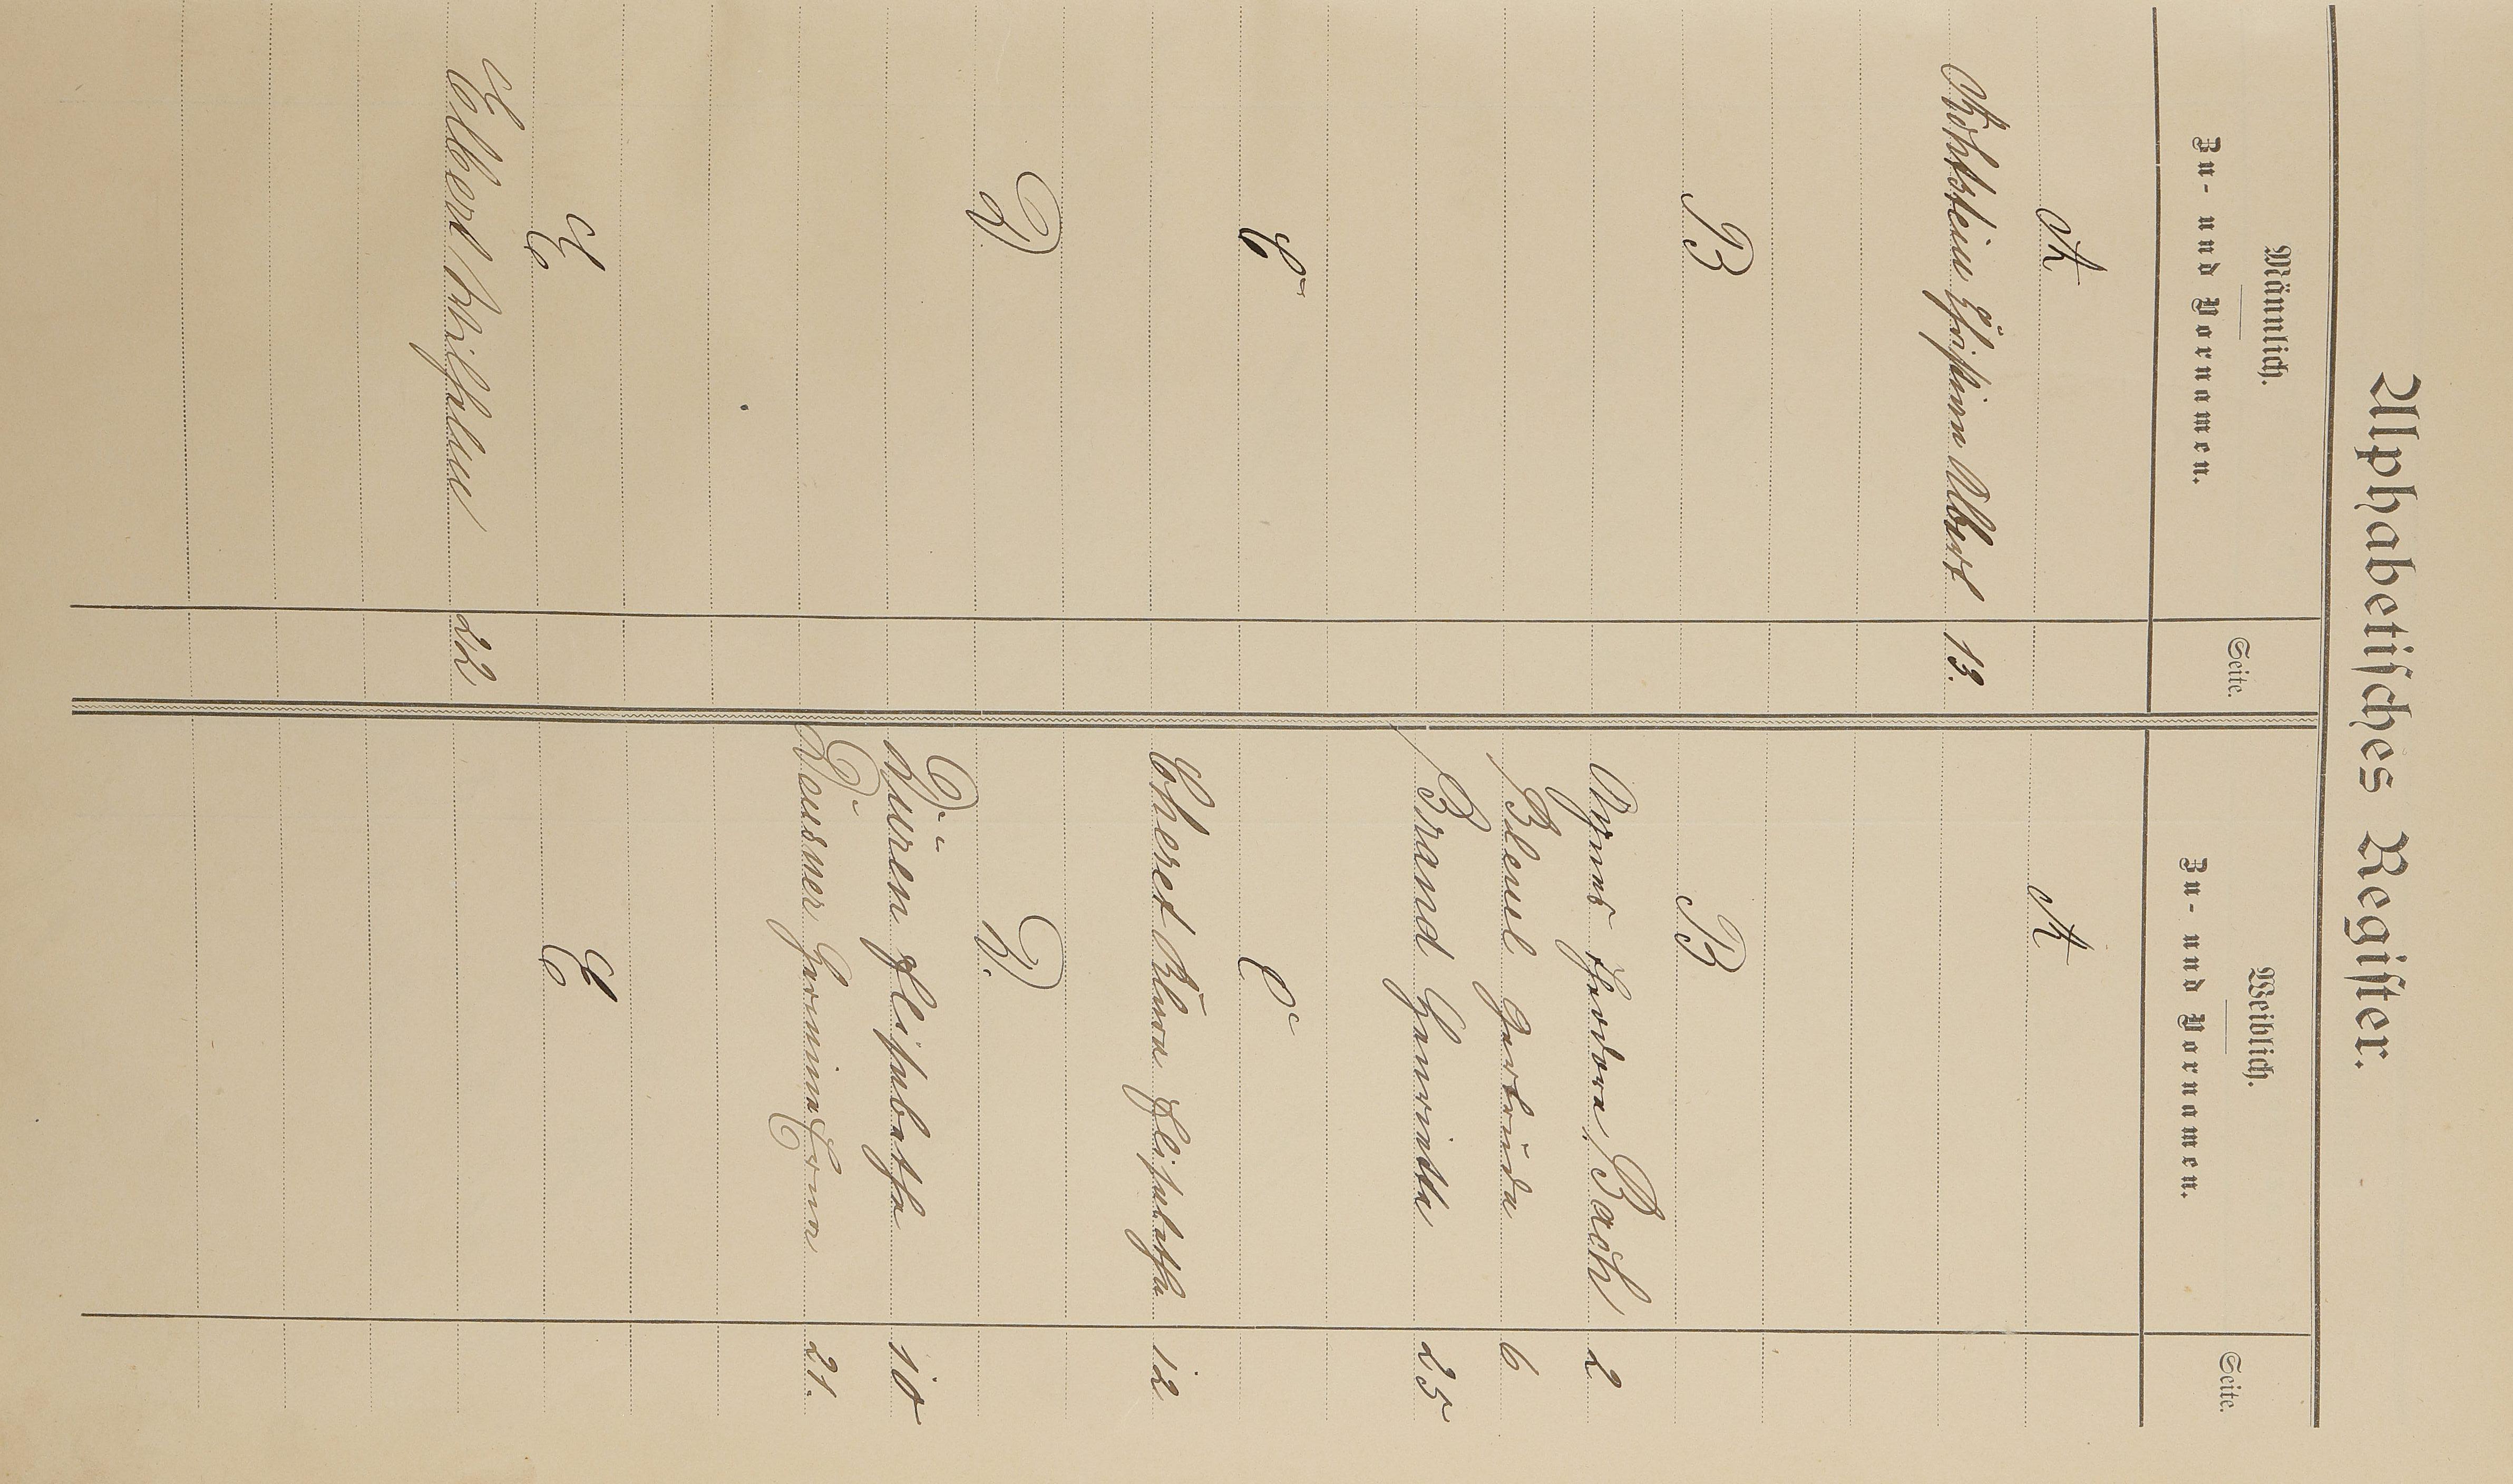 Alphabetisches Register.
Männlich.
Zu- und Vornamen.
Seite.
Weiblich.
Zu- und Vornamen.
Seite.
A
A
Christian Albert 13.
B
B
Agnes Bach 2
Bleul Gertruda 6
Brand Henrietta 25
C
C
Cheret Klara Elisabetha 12
D.
D.
Düren Elisabetha 10
Deusner Hermina Erna 21.
E
E
Elbert Wilhelm 22